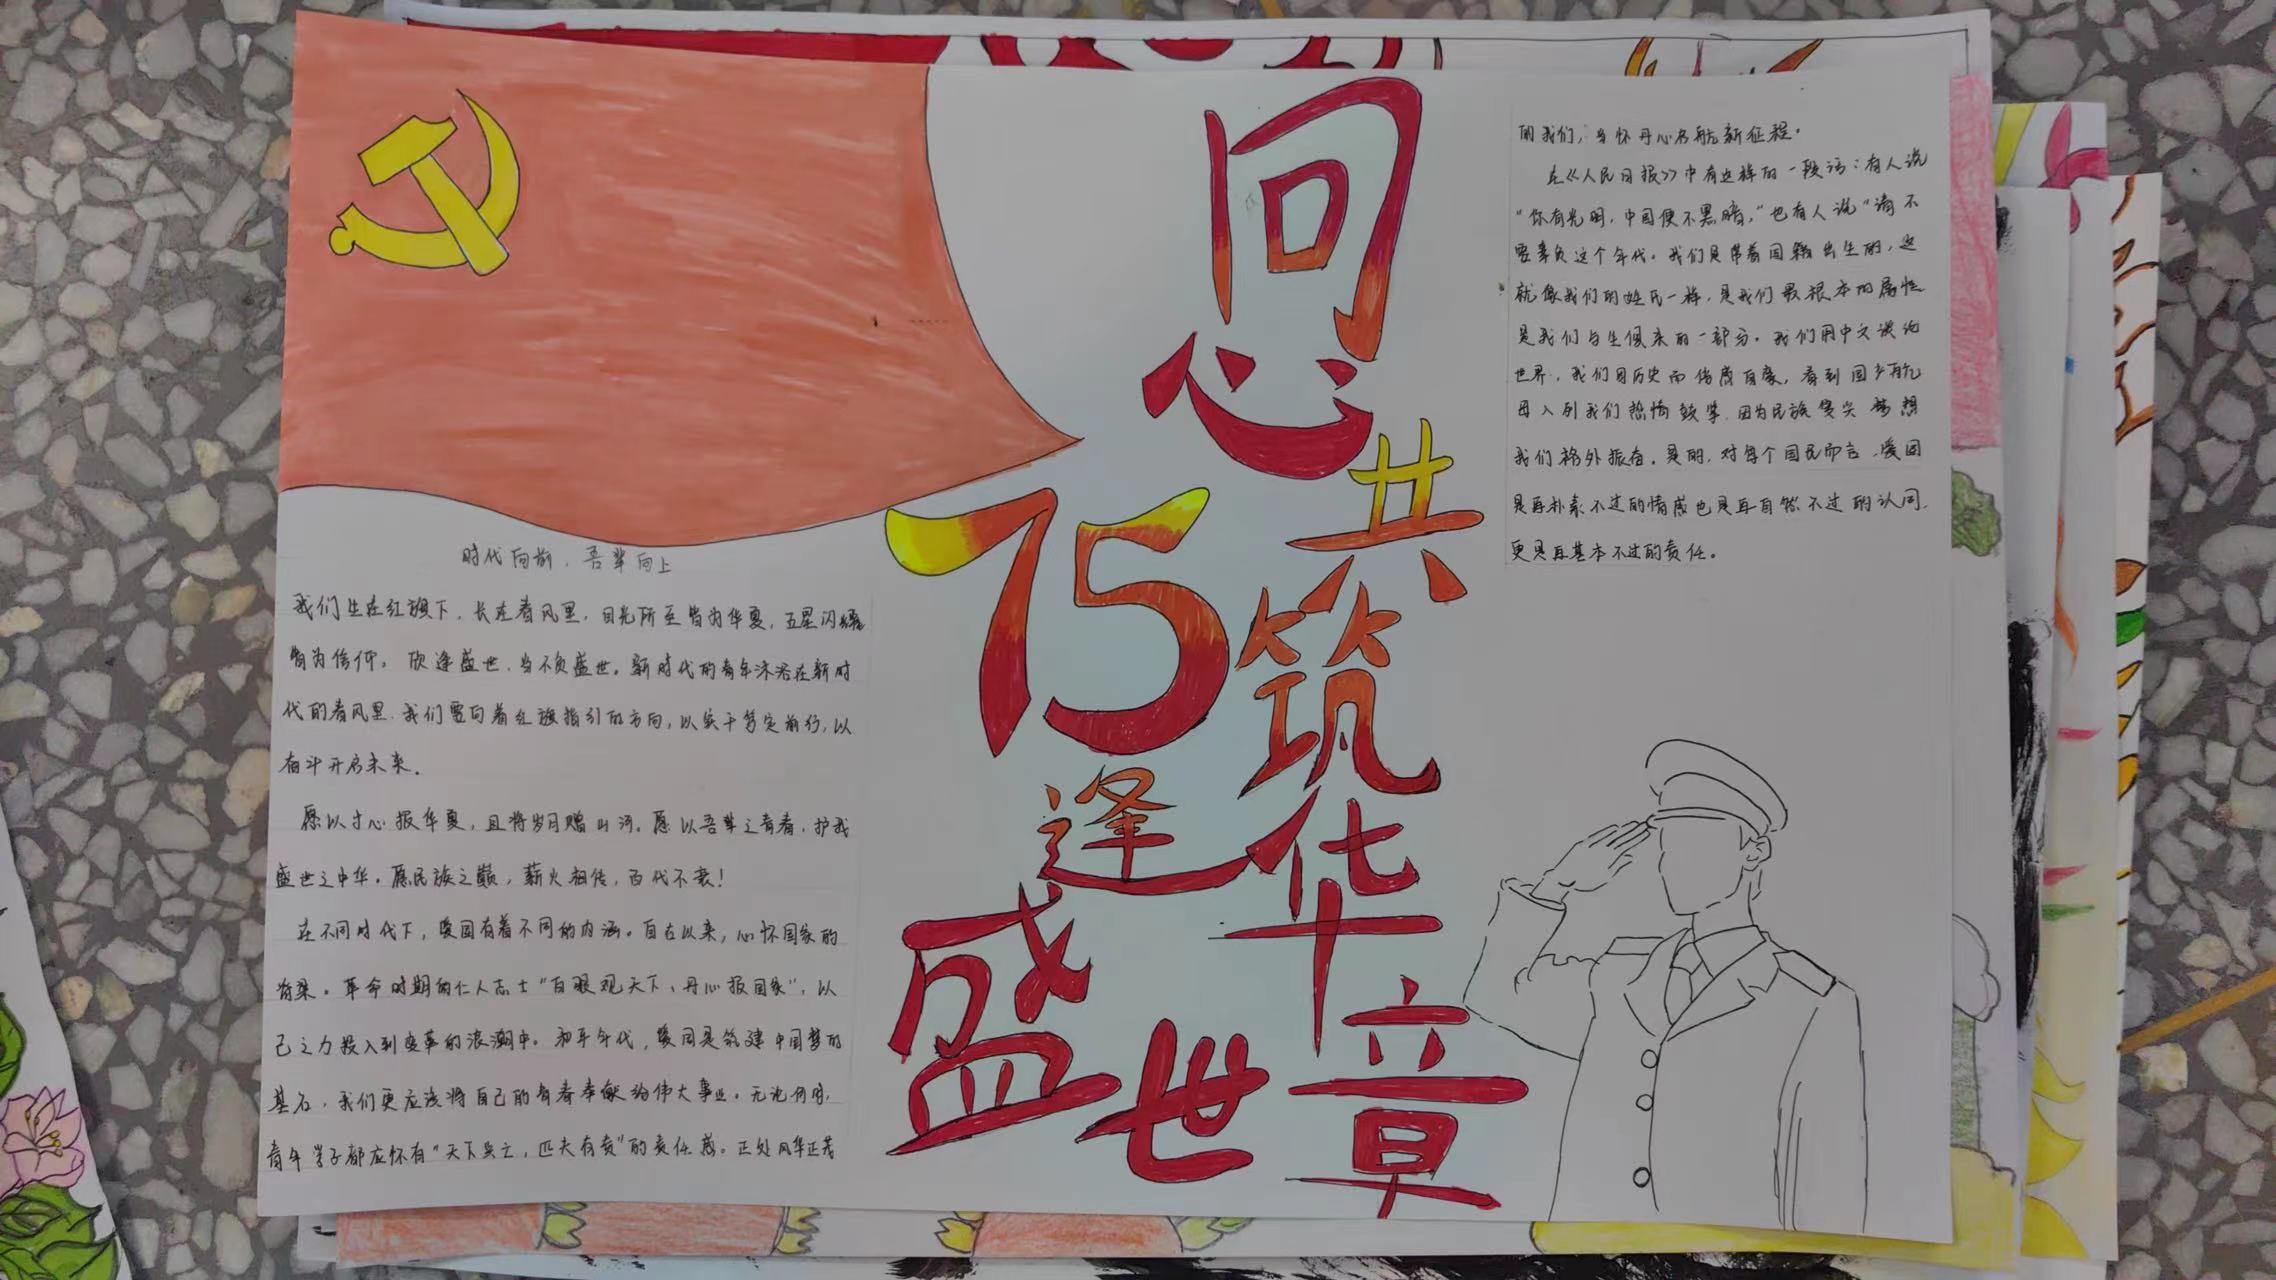 时代向前，吾辈向上
我们生在红旗下，长在春风里，目光所至皆为华夏，五星闪耀
皆为信仰。欣逢盛世，当不负盛世。新时代的青年沐浴在新时
代的春风里，我们要向着红旗指引的方向，以实干笃定前行，以
奋斗开启未来。
愿以寸心报华夏，且将岁月赠山河。愿以吾辈之青春，护我
盛世之中华。愿民族之巅，薪火相传，百代不衰！
在不同时代下，爱国有着不同的内涵。自古以来，心怀国家的
脊梁。革命时期的仁人志士“白眼观天下，丹心报国家”，以
己之力投入到变革的浪潮中。和平年代，爱国是筑建中国梦的
基石，我们更应该将自己的青春奉献给伟大事业。无论何时，
青年学子都应怀有“天下兴亡，匹夫有责”的责任感。正处风华正茂
同心
共筑华章
75
逢
盛世
的我们，当怀丹心启航新征程。
在《人民日报》中有这样的一段话：有人说
“你有光明，中国便不黑暗，”也有人说“请不
要辜负这个年代。我们是带着国籍出生的，这
就像我们的姓氏一样，是我们最根本的属性
是我们与生俱来的一部分。我们用中文谈论
世界，我们因历史而倍感自豪，看到国产航
母入列我们热情鼓掌，因为民族复兴梦想
我们格外振奋。是的，对每个国民而言，爱国
是再朴素不过的情感也是再自然不过的认同，
更是再基本不过的责任。